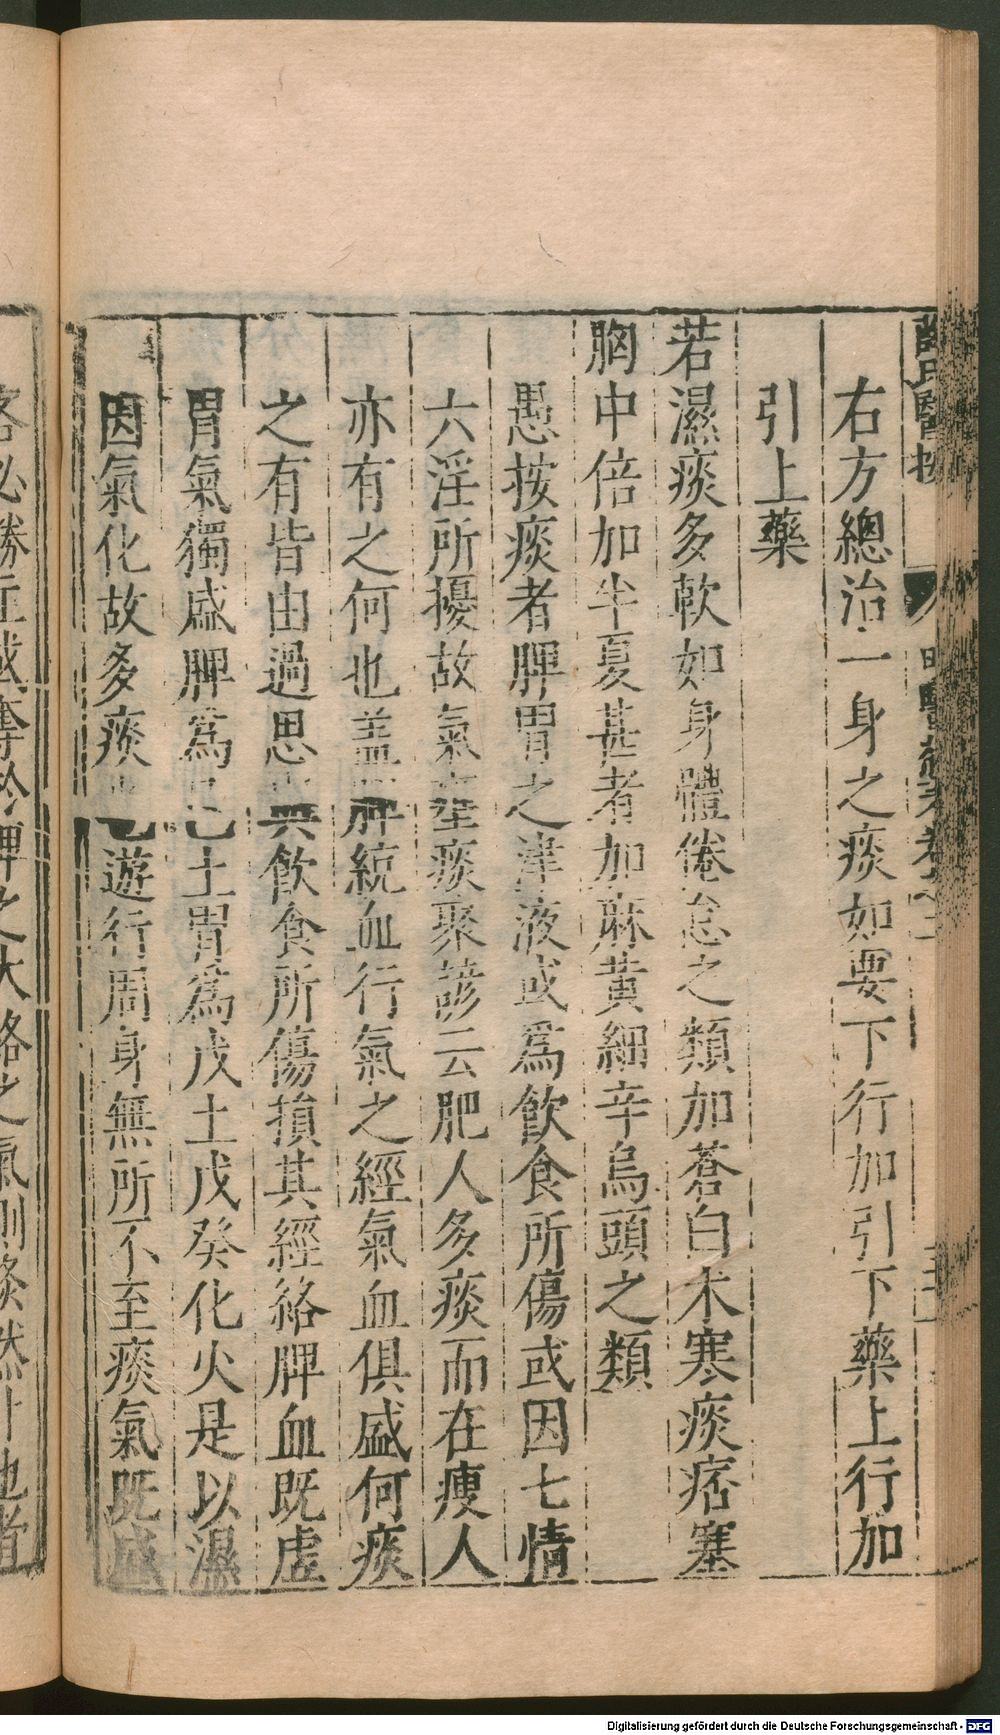 薛氏醫按
明醫雜著卷之二
右方總治一身之痰如要下行加引下藥上行加
引上藥
若濕痰多軟如身體倦怠之類加蒼白朮寒痰痞塞
胸中倍加半夏甚者加麻黃細辛烏頭之類
愚按痰者脾胃之津液或爲飲食所傷或因七情
六淫所擾故氣壅痰聚諺云肥人多痰而在瘦人
亦有之何也蓋脾統血行氣之經氣血俱盛何痰
之有皆由過思與飲食所傷損其經絡脾血既虛
胃氣獨盛脾爲己土胃爲戊土戊癸化火是以濕
因氣化故多痰也遊行周身無所不至痰氣既盛
客必勝主或奪於脾之大絡之氣則倐然仆地者
Digitalisierung gefördert durch die Deutsche Forschungsgemeinschaft - DFG